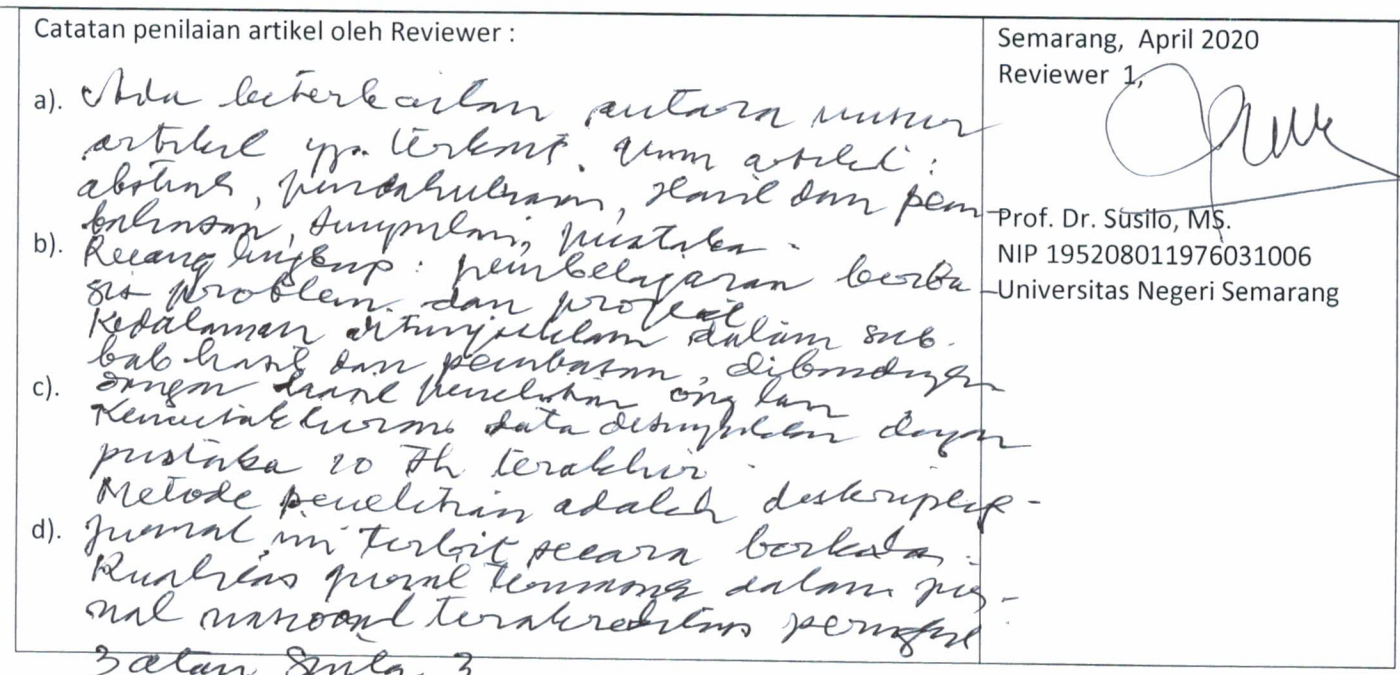 Catatan penilaian artikel oleh Reviewer :
a). Ada keterkaitan antara unsur
artikel yg. terkait. unsur artikel :
abstrak, pendahuluan, Hasil dan pem
bahasan, simpulan, pustaka.
b). Ruang lingkup : pembelajaran berba
sis problem dan proyek
Kedalaman ditunjukkan dalam sub.
bab hasil dan pembasan, dibandingkan
c). dengan hasil penelitian orang lain
Kemutakhiran data ditunjukkan dengan
pustaka 10 Th terakhir.
Metode penelitian adalah deskriptif -
d). Jurnal ini terbit secara berkala.
Kualitas jurnal termasuk dalam jur-
nal nasional terakreditasi peringkat
3 atau Sinta 3
Semarang, April 2020
Reviewer 1,
Prof. Dr. Susilo, MS.
NIP 195208011976031006
Universitas Negeri Semarang